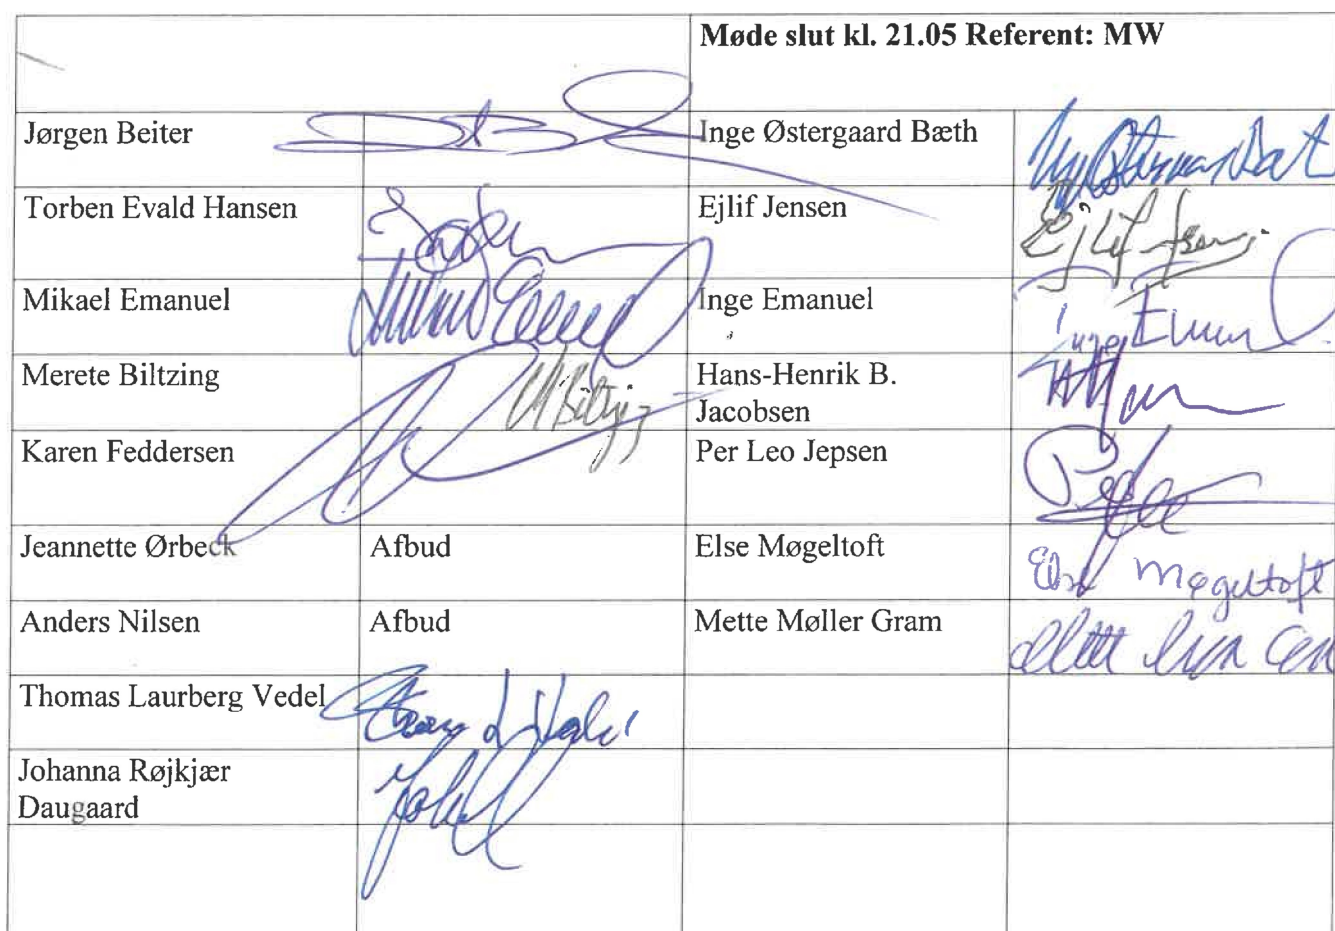 Møde slut kl. 21.05 Referent: MW
Jørgen Beiter
Inge Østergaard Bæth
Torben Evald Hansen
Ejlif Jensen
Ejlif Jensen
Mikael Emanuel
Inge Emanuel
Inge
Merete Biltzing
Hans-Henrik B.
Jacobsen
Karen Feddersen
Per Leo Jepsen
Jeannette Ørbeck
Afbud
Else Møgeltoft
Else Møgeltoft
Anders Nilsen
Afbud
Mette Møller Gram
Thomas Laurberg Vedel
Johanna Røjkjær
Daugaard